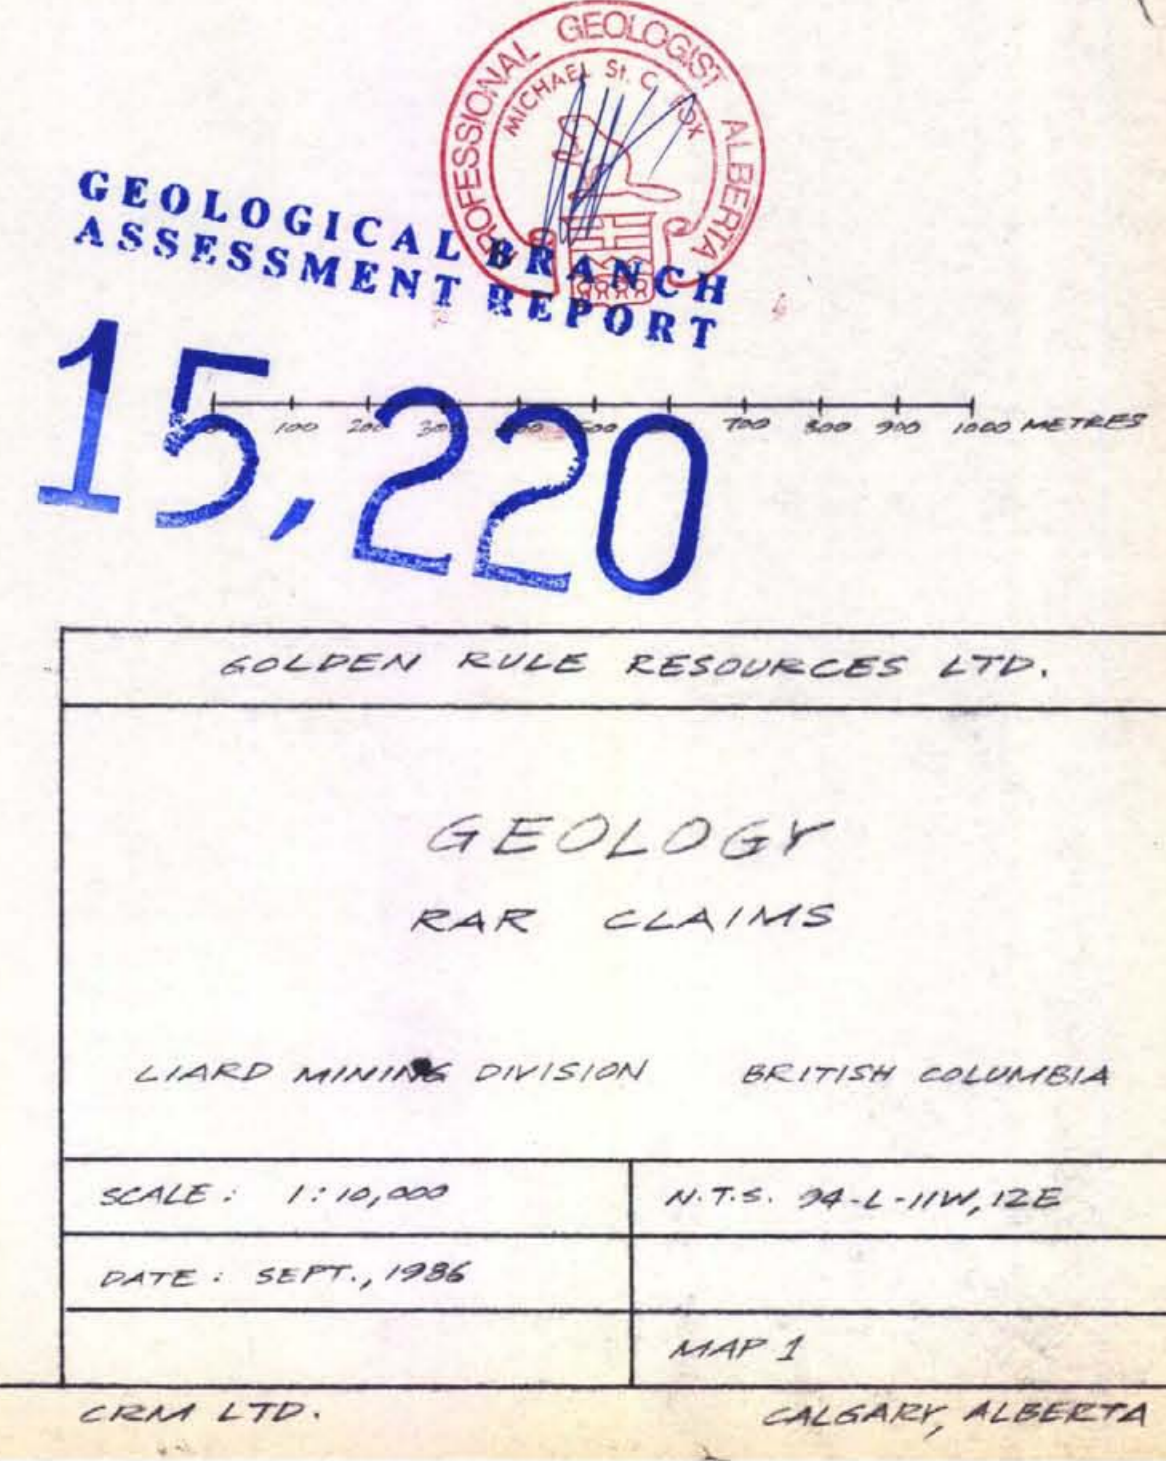 PROFESSIONAL GEOLOGIST ALBERTA
MICHAEL St. C. FOX
GEOLOGICAL BRANCH
ASSESSMENT REPORT
15,220
100 200 300 400 500 700 800 900 1000 METRES
GOLDEN RULE RESOURCES LTD.
GEOLOGY
RAR CLAIMS
LIARD MINING DIVISION BRITISH COLUMBIA
SCALE : 1:10,000
N.T.S. 94-L-11W, 12E
DATE : SEPT., 1986
MAP 1
CRM LTD.
CALGARY, ALBERTA